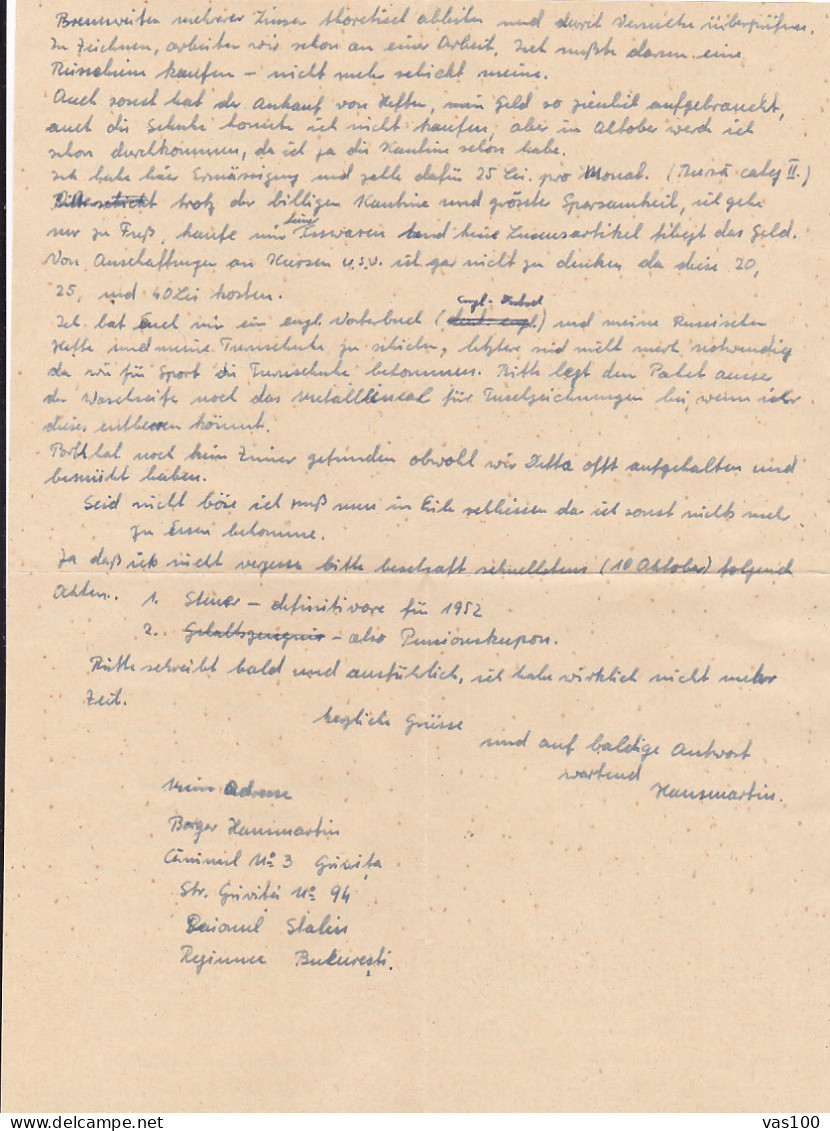 Brennweiten mehrerer Linsen theoretisch ableiten und durch Versuche überprüfen.
In Zeichnen, arbeiten wir schon an einer Arbeit. Ich mußte darum eine
kaufen – nicht mehr schickt meine.
Auch sonst hat der Ankauf von Heften, mein Geld so ziemlich aufgebraucht,
auch die Schuhe konnte ich nicht kaufen, aber im Oktober werde ich
schon durchkommen, da ich ja die Kantine schon habe.
Ich habe hier Ermässigung und zalle dafür 25 Lei. pro Monat. (Bursă categ II.)
trotz der billigen Kantine und grösster Sparsamkeit, ich gehe
nur zu Fuß, kaufe mir keine Esswaren und keine Luxusartikel fliegt das Geld.
Von Anschaffungen an Kursen u.s.w. ist gar nicht zu denken da diese 20,
25, und 40 Lei kosten.
Ich bat Euch mir ein engl. Wörterbuch (engl. - deutsch) und meine Russischen
Hefte und meine Turnschuhe zu schicken, letztere sind nicht mehr notwendig
da wir für Sport die Turnschuhe bekommen. Bitte legt dem Paket ausser
der Waschseife noch das Metallineal für Tuschzeichnungen bei, wenn ihr
dieses entbeeren könnt.
hat noch kein Zimer gefunden obwohl wir Detta oft aufgehalten und
bemüht haben.
Seid nicht böse ich muß nun in Eile schliessen da ich sonst nichts mehr
zu Essen bekomme.
Ja daß ich nicht vergesse bitte beschaft schnellstens (10 Oktober) folgend
Akten.. 1. Steuer – definitivare für 1952
2. Gehaltszeugnis – also Pensionskupon.
Bitte schreibt bald und ausführlich, ich habe wirklich nicht mehr
Zeit.
herzliche Grüsse
und auf baldige Antwort
wartend
Hansmartin.
Meine Adresse
Borger Hansmartin
Căminul No 3 Grivița
Str. Griviței No 94
Raionul Stalin
Regiunea București.
vas100